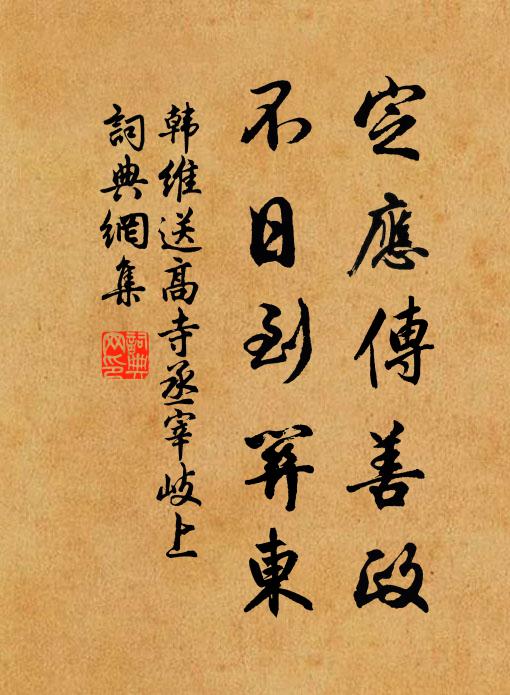 定應傳善政
不日到關東
韩維送高寺丞宰岐上
詞典網集
詞典网印